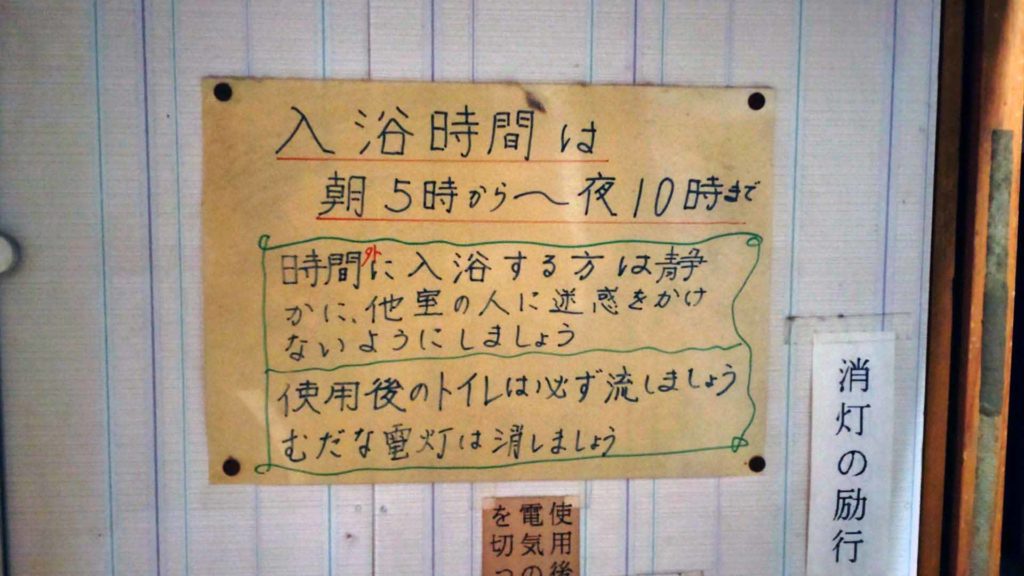 入浴時間は
朝5時から〜夜10時まで
時間外に入浴する方は静
かに、他室の人に迷惑をかけ
ないようにしましょう
使用後のトイレは必ず流しましょう
むだな電灯は消しましょう
消灯の励行
使用後
電気の
を切っ